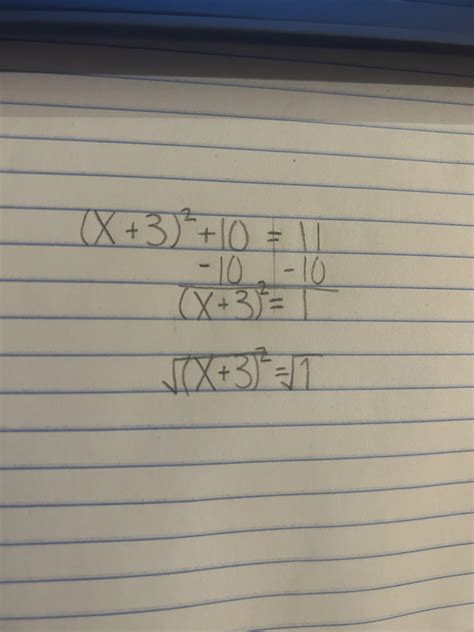 (x+3)²+10 = 11
-10 -10
(x+3)²= 1
√(x+3)²=√1